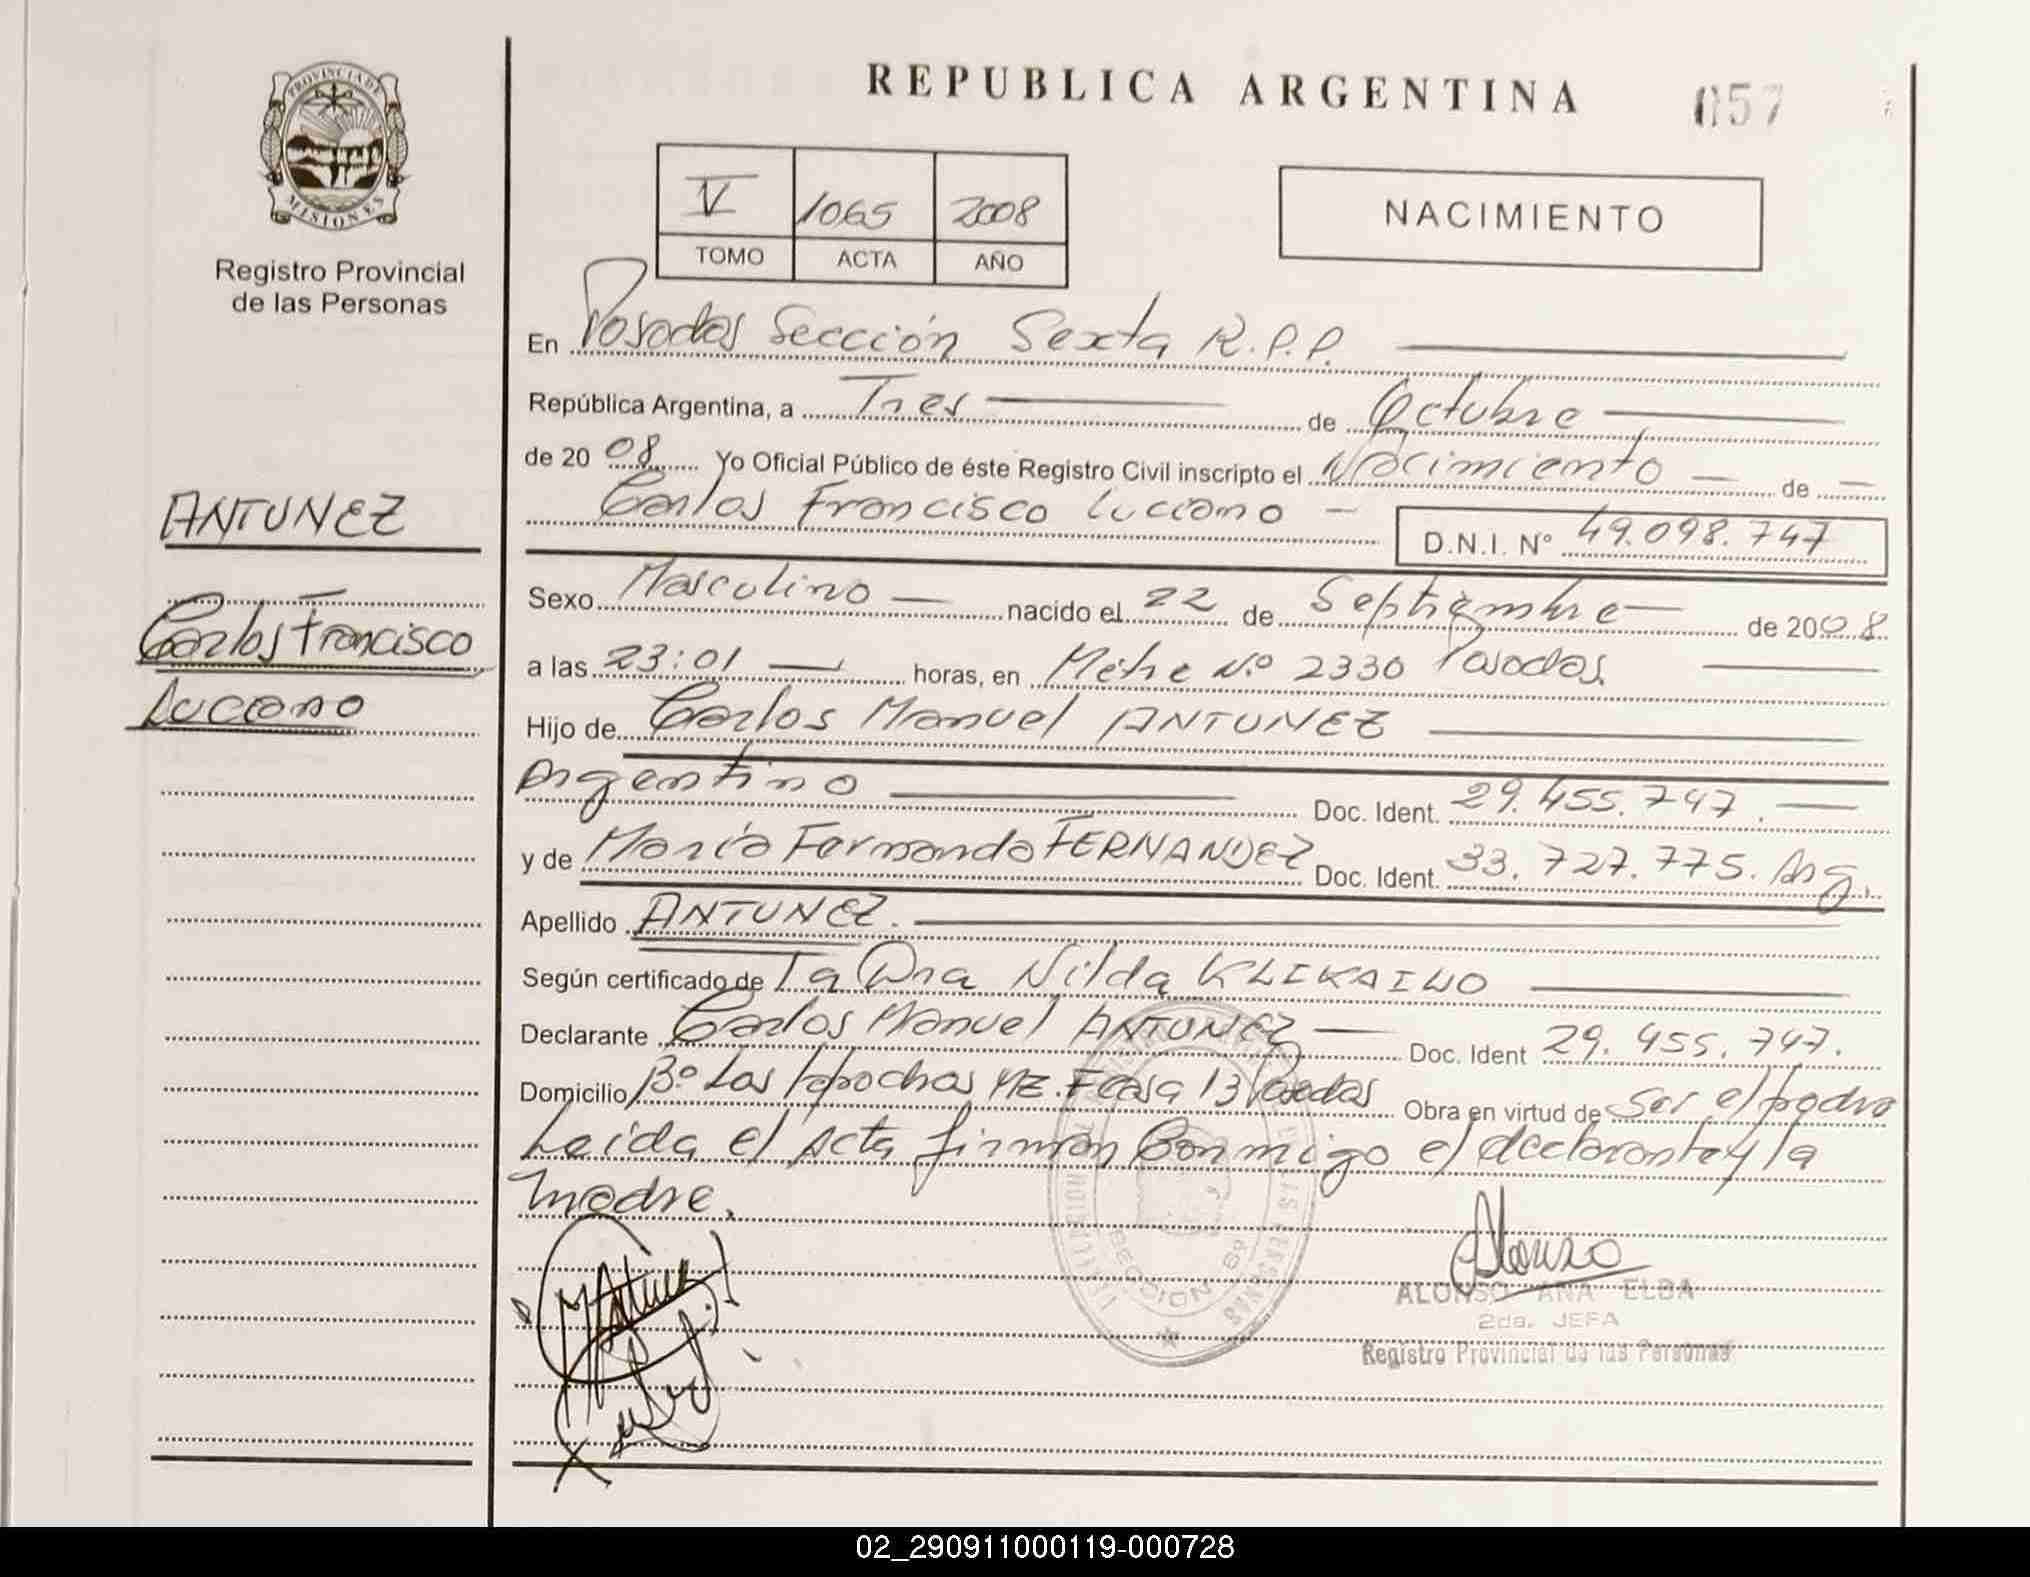 REPUBLICA ARGENTINA
057
PROVINCIA DE
MISIONES
Registro Provincial
de las Personas
V 1065 2008
TOMO ACTA AÑO
NACIMIENTO
En Posadas Sección Sexta R.P.P.
República Argentina, a Tres de Octubre
de 2008 Yo Oficial Público de éste Registro Civil inscripto el Nacimiento de
Carlos Francisco Luciano D.N.I. Nº 49.098.747
ANTUNEZ
Carlos Francisco
Luciano
Sexo Masculino nacido el 22 de Septiembre de 2008
a las 23:01 horas, en Mitre Nº 2330 Posadas
Hijo de Carlos Manuel ANTUNEZ
Argentino Doc. Ident. 29.455.747.
y de María Fernanda FERNANDEZ Doc. Ident. 33.727.775. Arg.
Apellido ANTUNEZ.
Según certificado de La Dra Nilda
Declarante Carlos Manuel ANTUNEZ Doc. Ident 29.455.747.
Domicilio Bº Las MZ. F casa 13 Posadas Obra en virtud de ser el padre
Leida el Acta firman Conmigo el declarante y la
madre.
SECCION 6º
Alonso
ALONSO ANA ELBA
2da. JEFA
Registro Provincial de las Personas
02_290911000119-000728